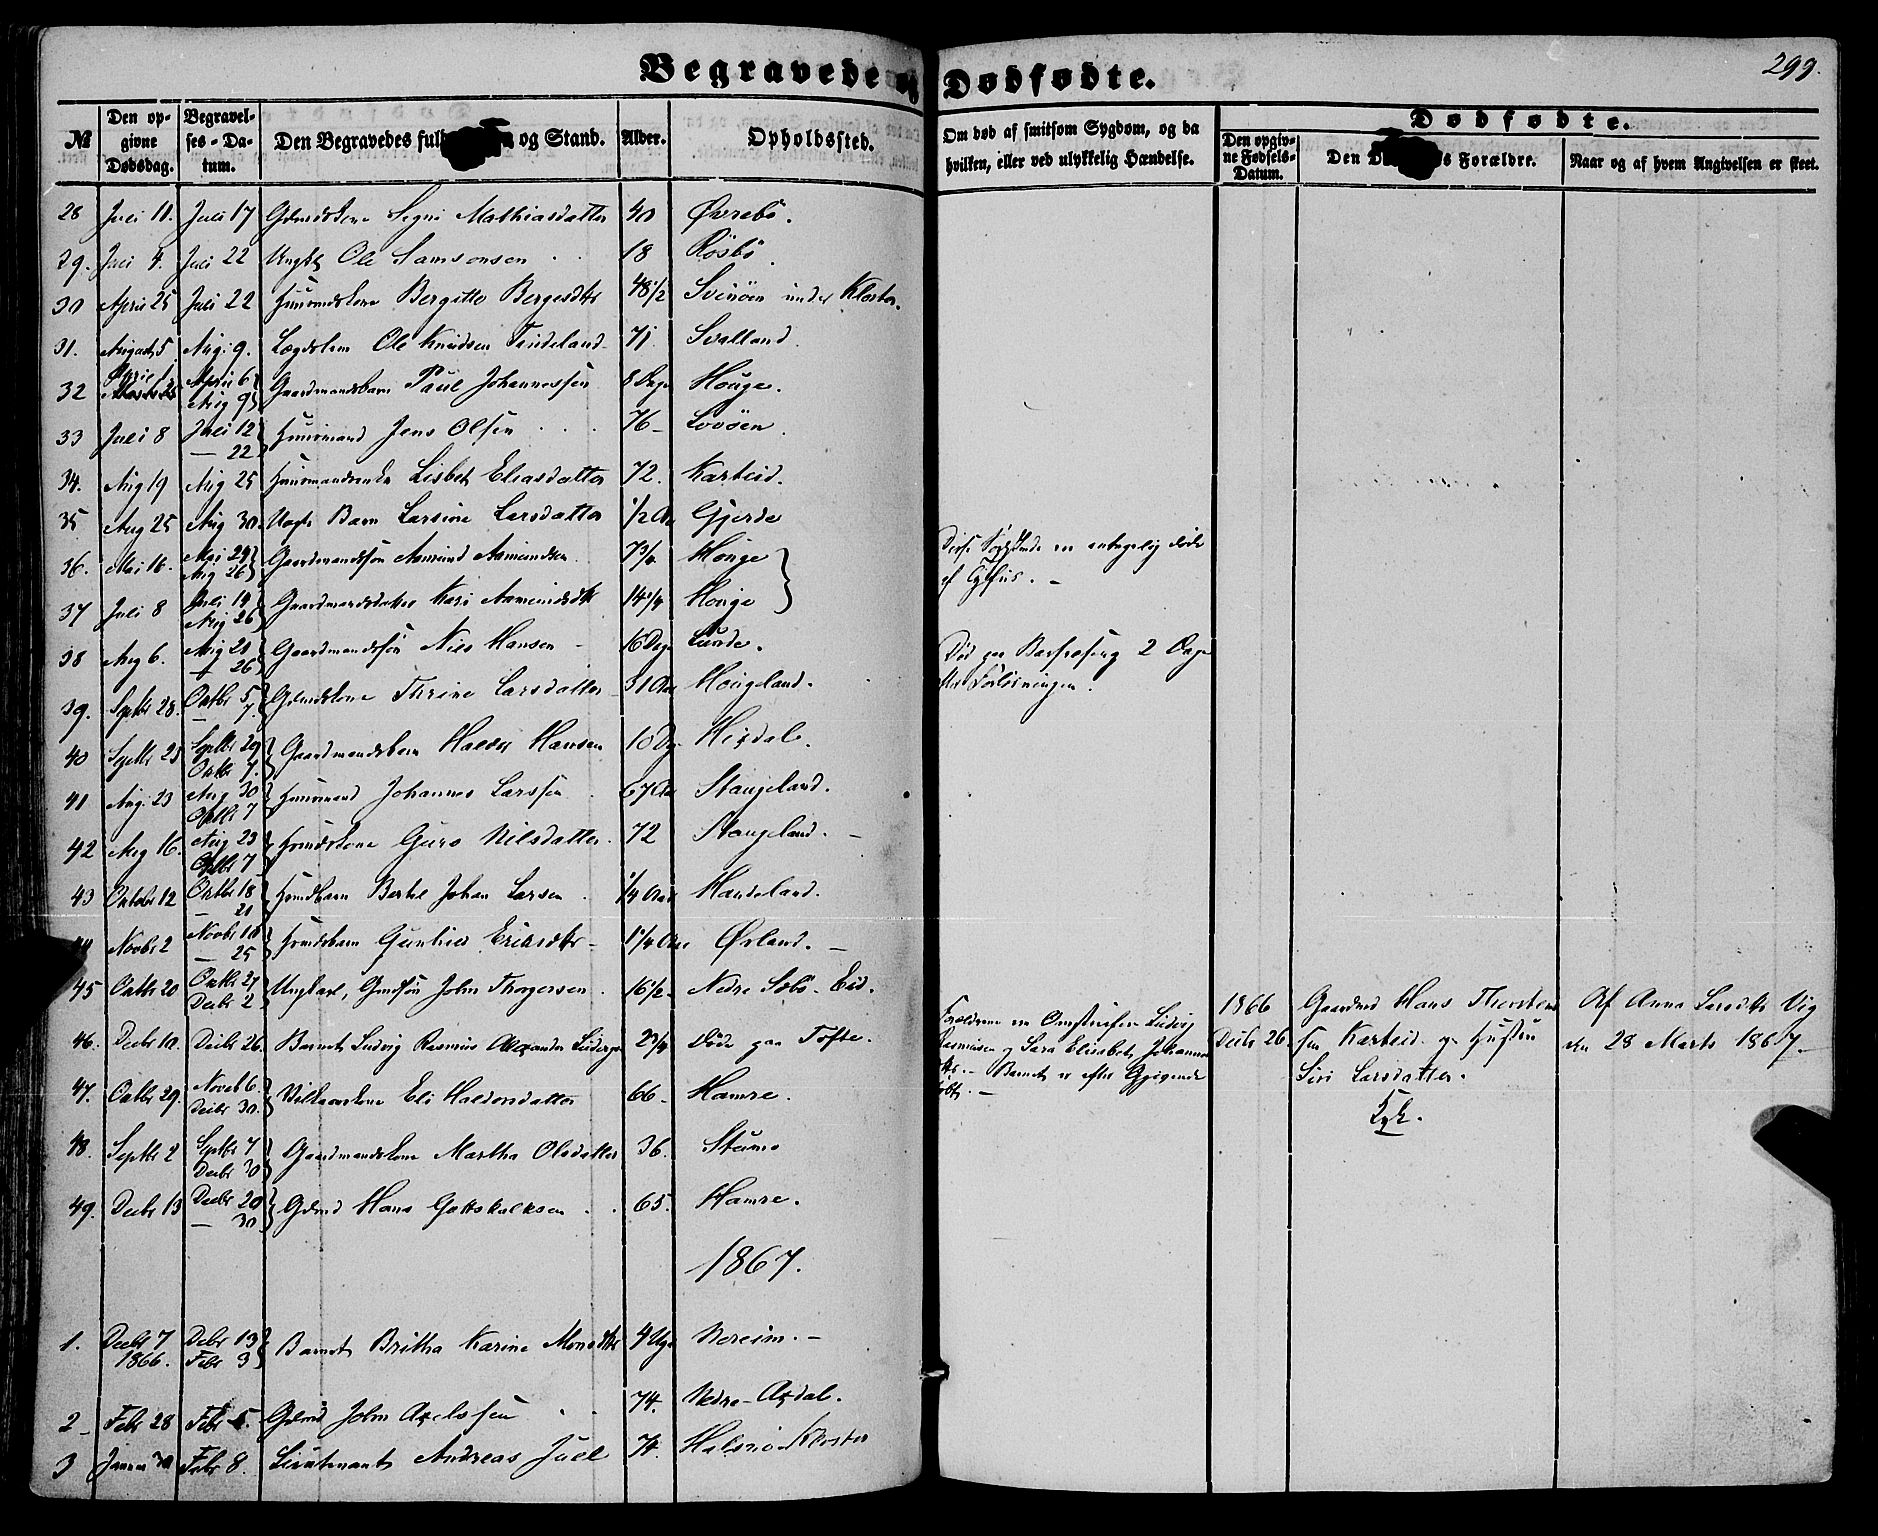 Begravede og Dødfødte.
299.
№ Den opgivne Dødsdag. Begravelses-Datum. Den Begravedes fulde og Stand. Alder. Opholdssted. Om død af smitsom Sygdom, og da hvilken, eller ved ulykkelig Hændelse. Dødfødte. Den opgivne Fødsels-Datum. Den Forældre. Naar og af hvem Angivelsen er skeet.
28 Juli 11. Juli 17 Segni Mathiasdatter 40 Øvrebø.
29. Juli 4. Juli 22 Ungk Ole Samsonsen 18 Røsbø
30 April 25 Juli 22 Huusmdskone Bergitte Bergesdtr 48 1/2 Svinøen under Kloster.
31. August 5 Aug. 9. Lægdslem Ole Knudsen 71 Svalland
32 April 1 April 6 Aug 9 Gaardmandsbarn Paul Johannessen 8 Dage Houge.
33 Juli 8 Juli 12 – 22 Huusmand Jens Olsen 76 –
34. Aug 19 Aug 25 Huusmandsenke Lisbet Eliasdatter 72. Karteid.
35 Aug 25 Aug 30. Barn Larsine Larsdatter 1/2 Aar Gjerde
36. Mai 16. Mai 29 Aug 26 Gaardmandssøn Aamund Aamundsen 7 3/4 Houge
37 Juli 8 Juli 14 Aug 26 Gaardmandsdatter Kari Aamundsdtr 14 1/4 Houge
Disse Søskende ere antagelig døde af Tyfus. –
38 Aug 6. Aug 20 – 26 Gaardmandssøn Nils Hansen 16 Dage Lunde.
39. Septbr 28. Octbr 5 – 7. Thrine Larsdatter 31 Aar Hougeland.
Død paa Barselseng 2 Dage efter Forløsningen.
40 Septbr 23 Septbr 29 Octbr 7. Gaardmandsbarn Haldor Hansen 10 Dg. Hisdal.
41 Aug. 23 Aug 30 Octbr 7 Huusmand Johannes Larssen 67 Aar Stangeland.
42 Aug 16. Aug 23 Octbr 7 Huusmdskone Guro Nilsdatter 72 Stangeland. –
43 October 12 Octbr 18 – 21 Berthel Johan Larsen 1/4 Aar Handeland.
44 Novbr 2 Novbr 10 – 25 Gunhild Eriksdtr – 1 1/4 Aar Ørland. –
45 Octbr 20 Octbr 27 Decbr 2 Ungkarl, Gmdsøn John Thorgersen 16 1/2 – Nedre Sæbø – Eid.
46. Decbr 10. Decbr 26. Barnet Ludvig Rasmus Alexander 2 3/4 døde paa Tofte.
Forældrene ere Omstreifere Ludvig Rasmussen og Sara Elisabeth Johannesdtr. – Barnet er efter Opgivende
1866 Decbr 26. Gaardmd Hans Thorstensen Karteid og Hustru Siri Larsdatter. Af Anna Larsdtr Vig den 28 Marts 1867. –
47. Octbr 29. Novbr 6 Decbr 30. Vilkaarskone Eli Haldorsdatter 66 – Hamre.
48. Septbr 2 Septbr 7 Decbr 30 Gaardmandskone Martha Olsdatter 36. Stumo
49. Decbr 13 Decbr 20 – 30. Gdmd Hans Gottskalksen 65. Hamre.
1867.
1. Decbr 7 1866. Debr 13 Febr 3 Barnet Britha Karine Monsdtr 4 Uger Noreim. –
2 – Febr 28 Febr 5. Gdmd John Axelssen 74. Nedre – Axdal.
3 Januar 30 Febr 8. Lieutenant Andreas Juel 74. Halsnø Kloster